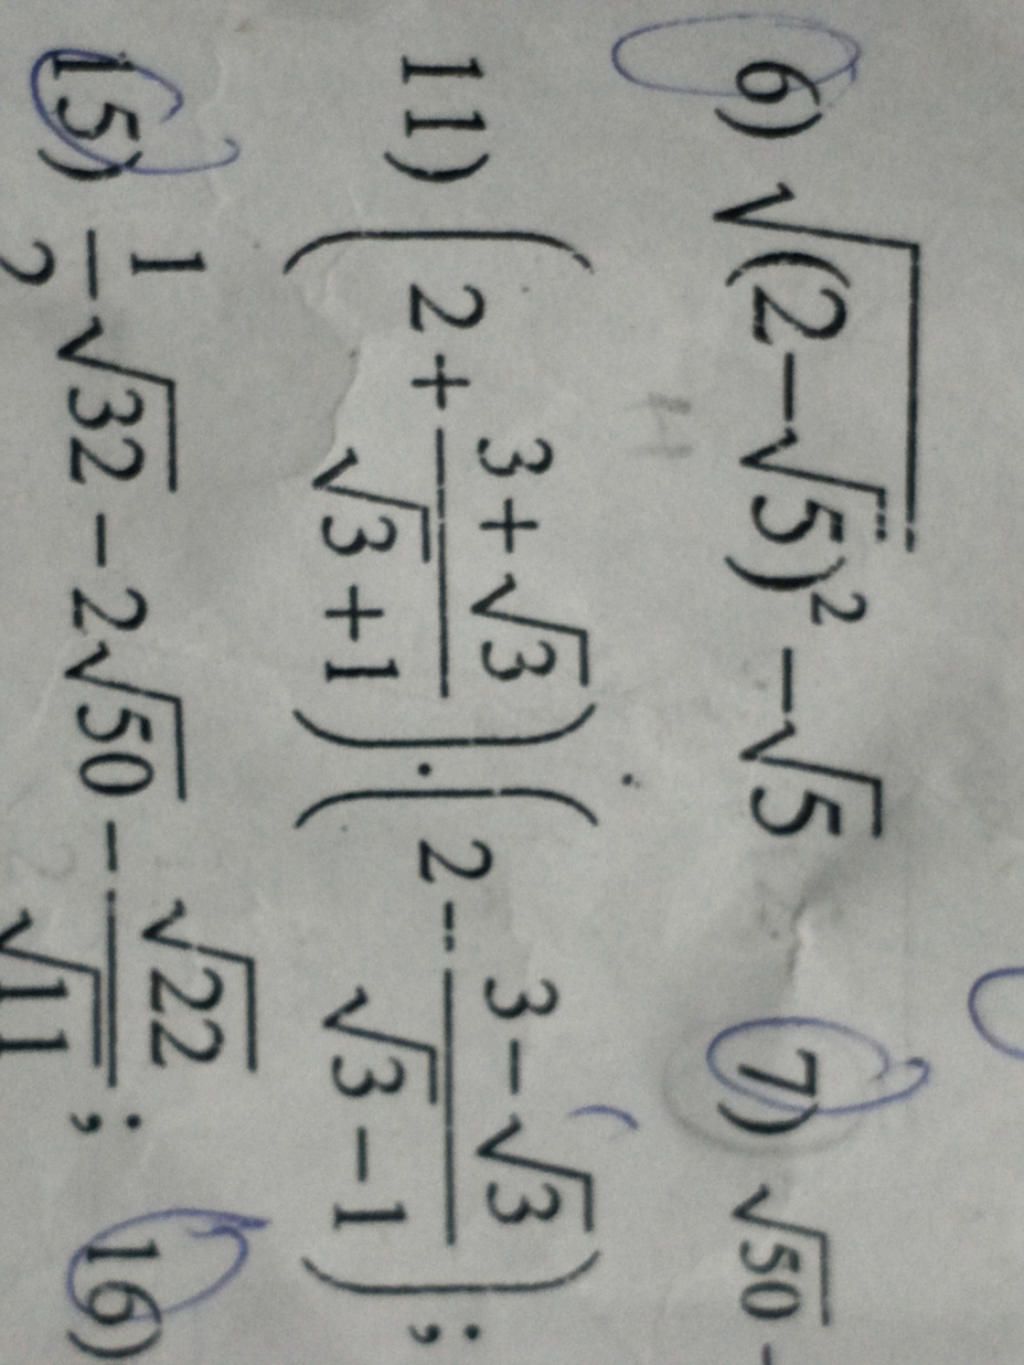 6) √((2−√5)²) −√5 7) √50 −
11) (2 + (3 + √3)/(√3 + 1)) · (2 − (3 − √3)/(√3 − 1));
15) 1/2 √32 − 2√50 − √22/√11; 16)